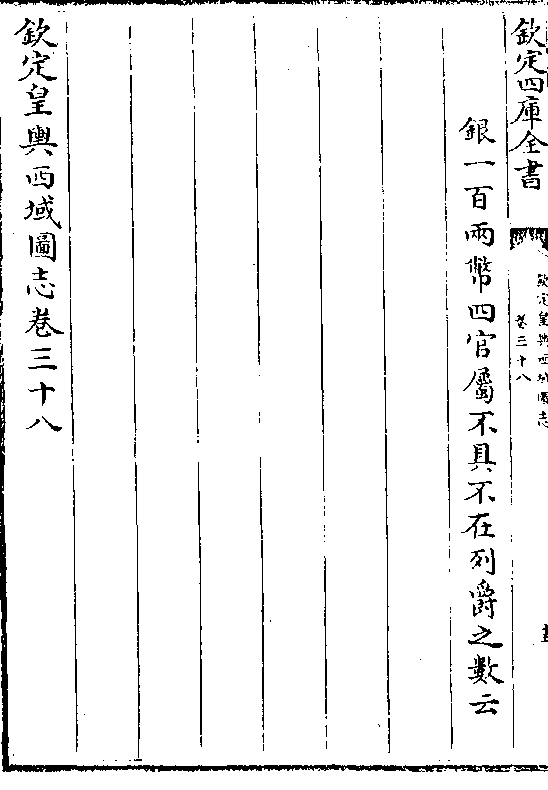 欽定四庫全書
欽定皇輿西域圖志
卷三十八
銀一百兩幣四官屬不具不在列爵之數云
欽定皇輿西域圖志卷三十八